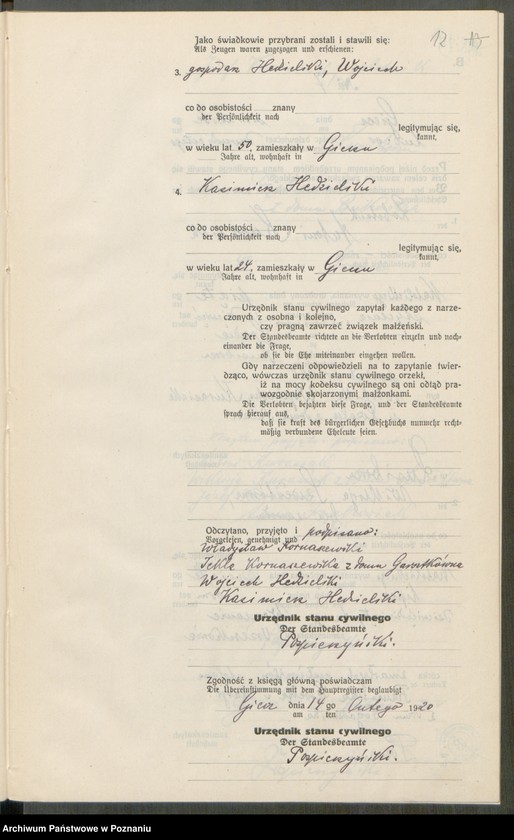 12
Jako świadkowie przybrani zostali i stawili się:
Als Zeugen waren zugezogen und erschienen:
3. gospodarz Hedzielski, Wojciech
co do osobistości znany
der Persönlichkeit nach
legitymując się,
kannt,
w wieku lat 50, zamieszkały w Gieczu
Jahre alt, wohnhaft in
4. Kazimierz Hedzielski
co do osobistości znany
der Persönlichkeit nach
legitymując się,
kannt,
w wieku lat 24, zamieszkały w Gieczu
Jahre alt, wohnhaft in
Urzędnik stanu cywilnego zapytał każdego z narze-
czonych z osobna i kolejno,
czy pragną zawrzeć związek małżeński.
Der Standesbeamte richtete an die Verlobten einzeln und nach-
einander die Frage,
ob sie die Ehe miteinander eingehen wollen.
Gdy narzeczeni odpowiedzieli na to zapytanie twier-
dząco, wówczas urzędnik stanu cywilnego orzekł,
iż na mocy kodeksu cywilnego są oni odtąd pra-
wozgodnie skojarzonymi małżonkami.
Die Verlobten bejahten diese Frage, und der Standesbeamte
sprach hierauf aus,
daß sie kraft des bürgerlichen Gesetzbuchs nunmehr recht-
mäßig verbundene Eheleute seien.
Odczytano, przyjęto i podpisano:
Vorgelesen, genehmigt und
Władysław Kornaszewski
Tekla Kornaszewska z domu
Wojciech Hedzielski
Kazimierz Hedzielski
Urzędnik stanu cywilnego
Der Standesbeamte
Zgodność z księgą główną poświadczam
Die Übereinstimmung mit dem Hauptregister beglaubigt
Giecz dnia 14 go Lutego 1920
am ten
Urzędnik stanu cywilnego
Der Standesbeamte
Archiwum Państwowe w Poznaniu